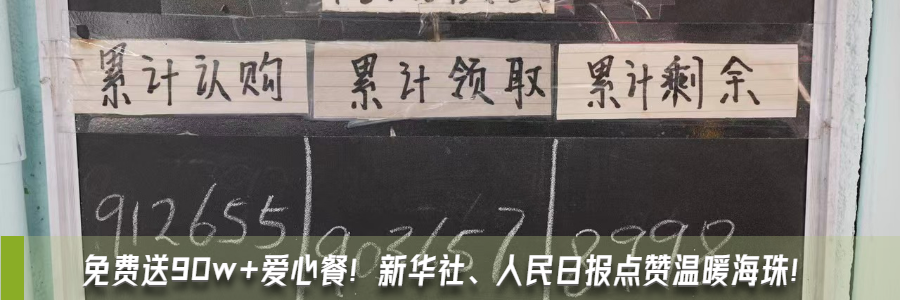 累计认购 累计领取 累计剩余
912655 903657 8998
免费送90w+爱心餐！新华社、人民日报点赞温暖海珠！